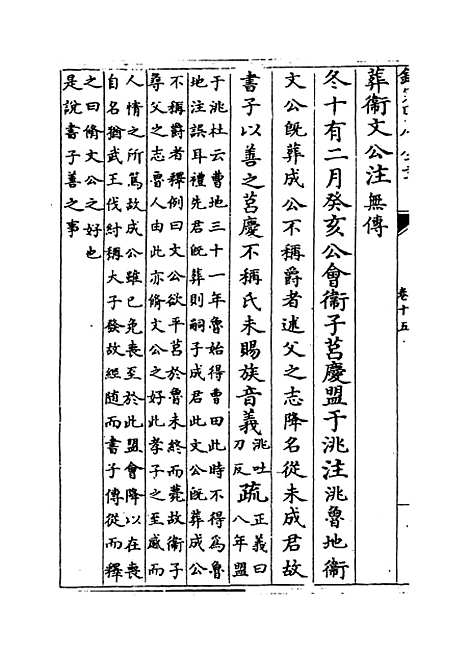 葬衞文公注無傳
冬十有二月癸亥公會衞子莒慶盟于洮注洮魯地衞
文公旣葬成公不稱爵者述父之志降名從未成君故
書子以善之莒慶不稱氏未賜族音義洮吐刀反疏正義曰八年盟
于洮杜云曹地三十一年魯始得曹田此時不得爲魯
地注誤耳禮先君旣葬則嗣子成君此文公旣葬成公
不稱爵者釋例曰文公欲平莒於魯未終而薨故衞子
尋父之志魯人由此亦脩文公之好此孝子之至感而
人情之所篤故成公雖已免喪至於此盟會降以在喪
自名猶武王伐紂稱大子發故經隨而書子傳從而釋
之曰脩文公之好也
是說書子善之事
卷十五